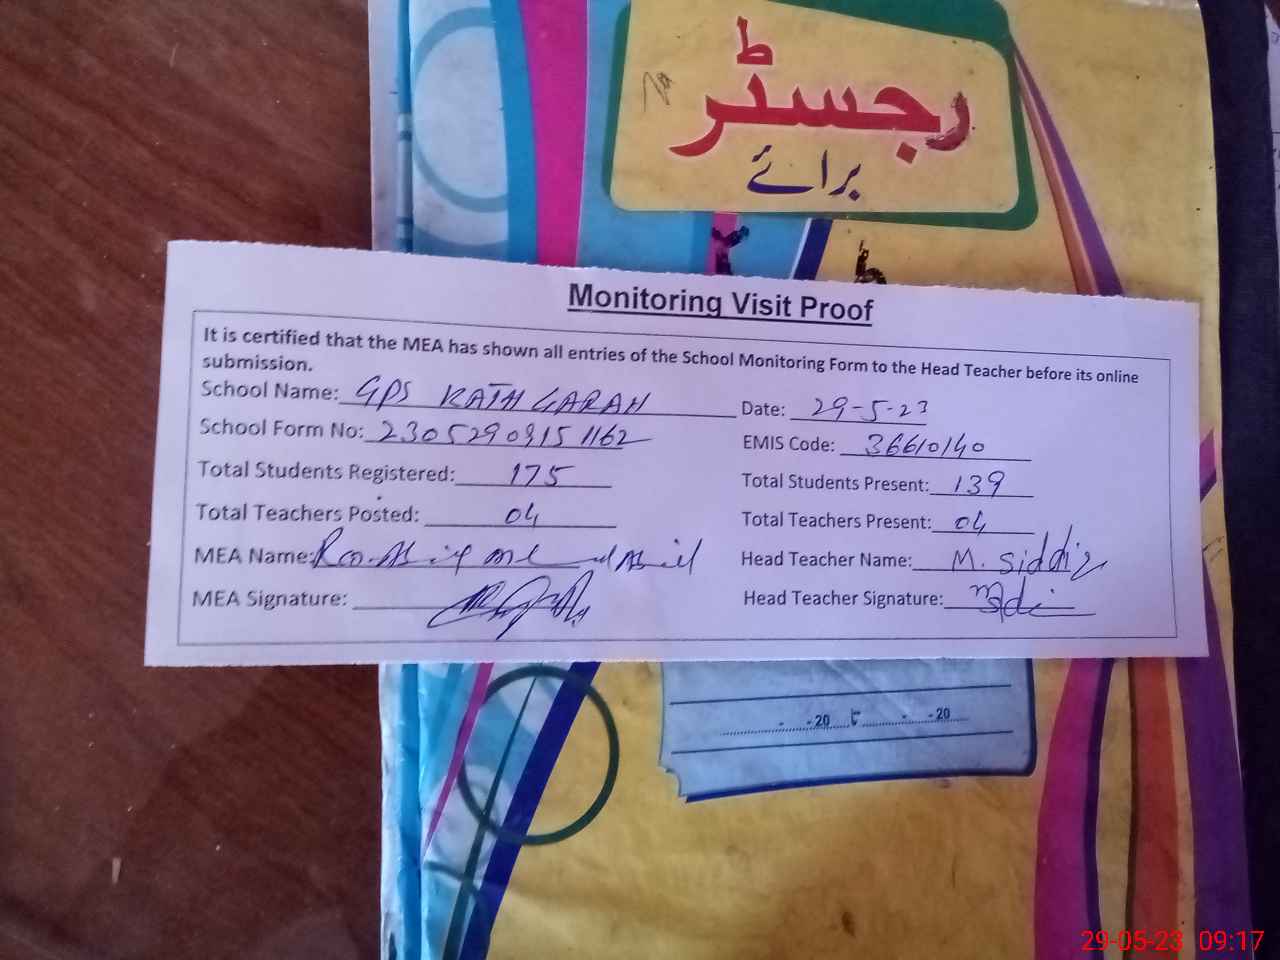 رجسٹر
برائے
Monitoring Visit Proof
It is certified that the MEA has shown all entries of the School Monitoring Form to the Head Teacher before its online
submission.
School Name: GPS KATH GARAH Date: 29-5-23
School Form No: 23052909151162 EMIS Code: 36610140
Total Students Registered: 175 Total Students Present: 139
Total Teachers Posted: 04 Total Teachers Present: 04
MEA Name: Head Teacher Name: M. Siddiq
MEA Signature: Head Teacher Signature:
- -20 تا - -20
29-05-23 09:17